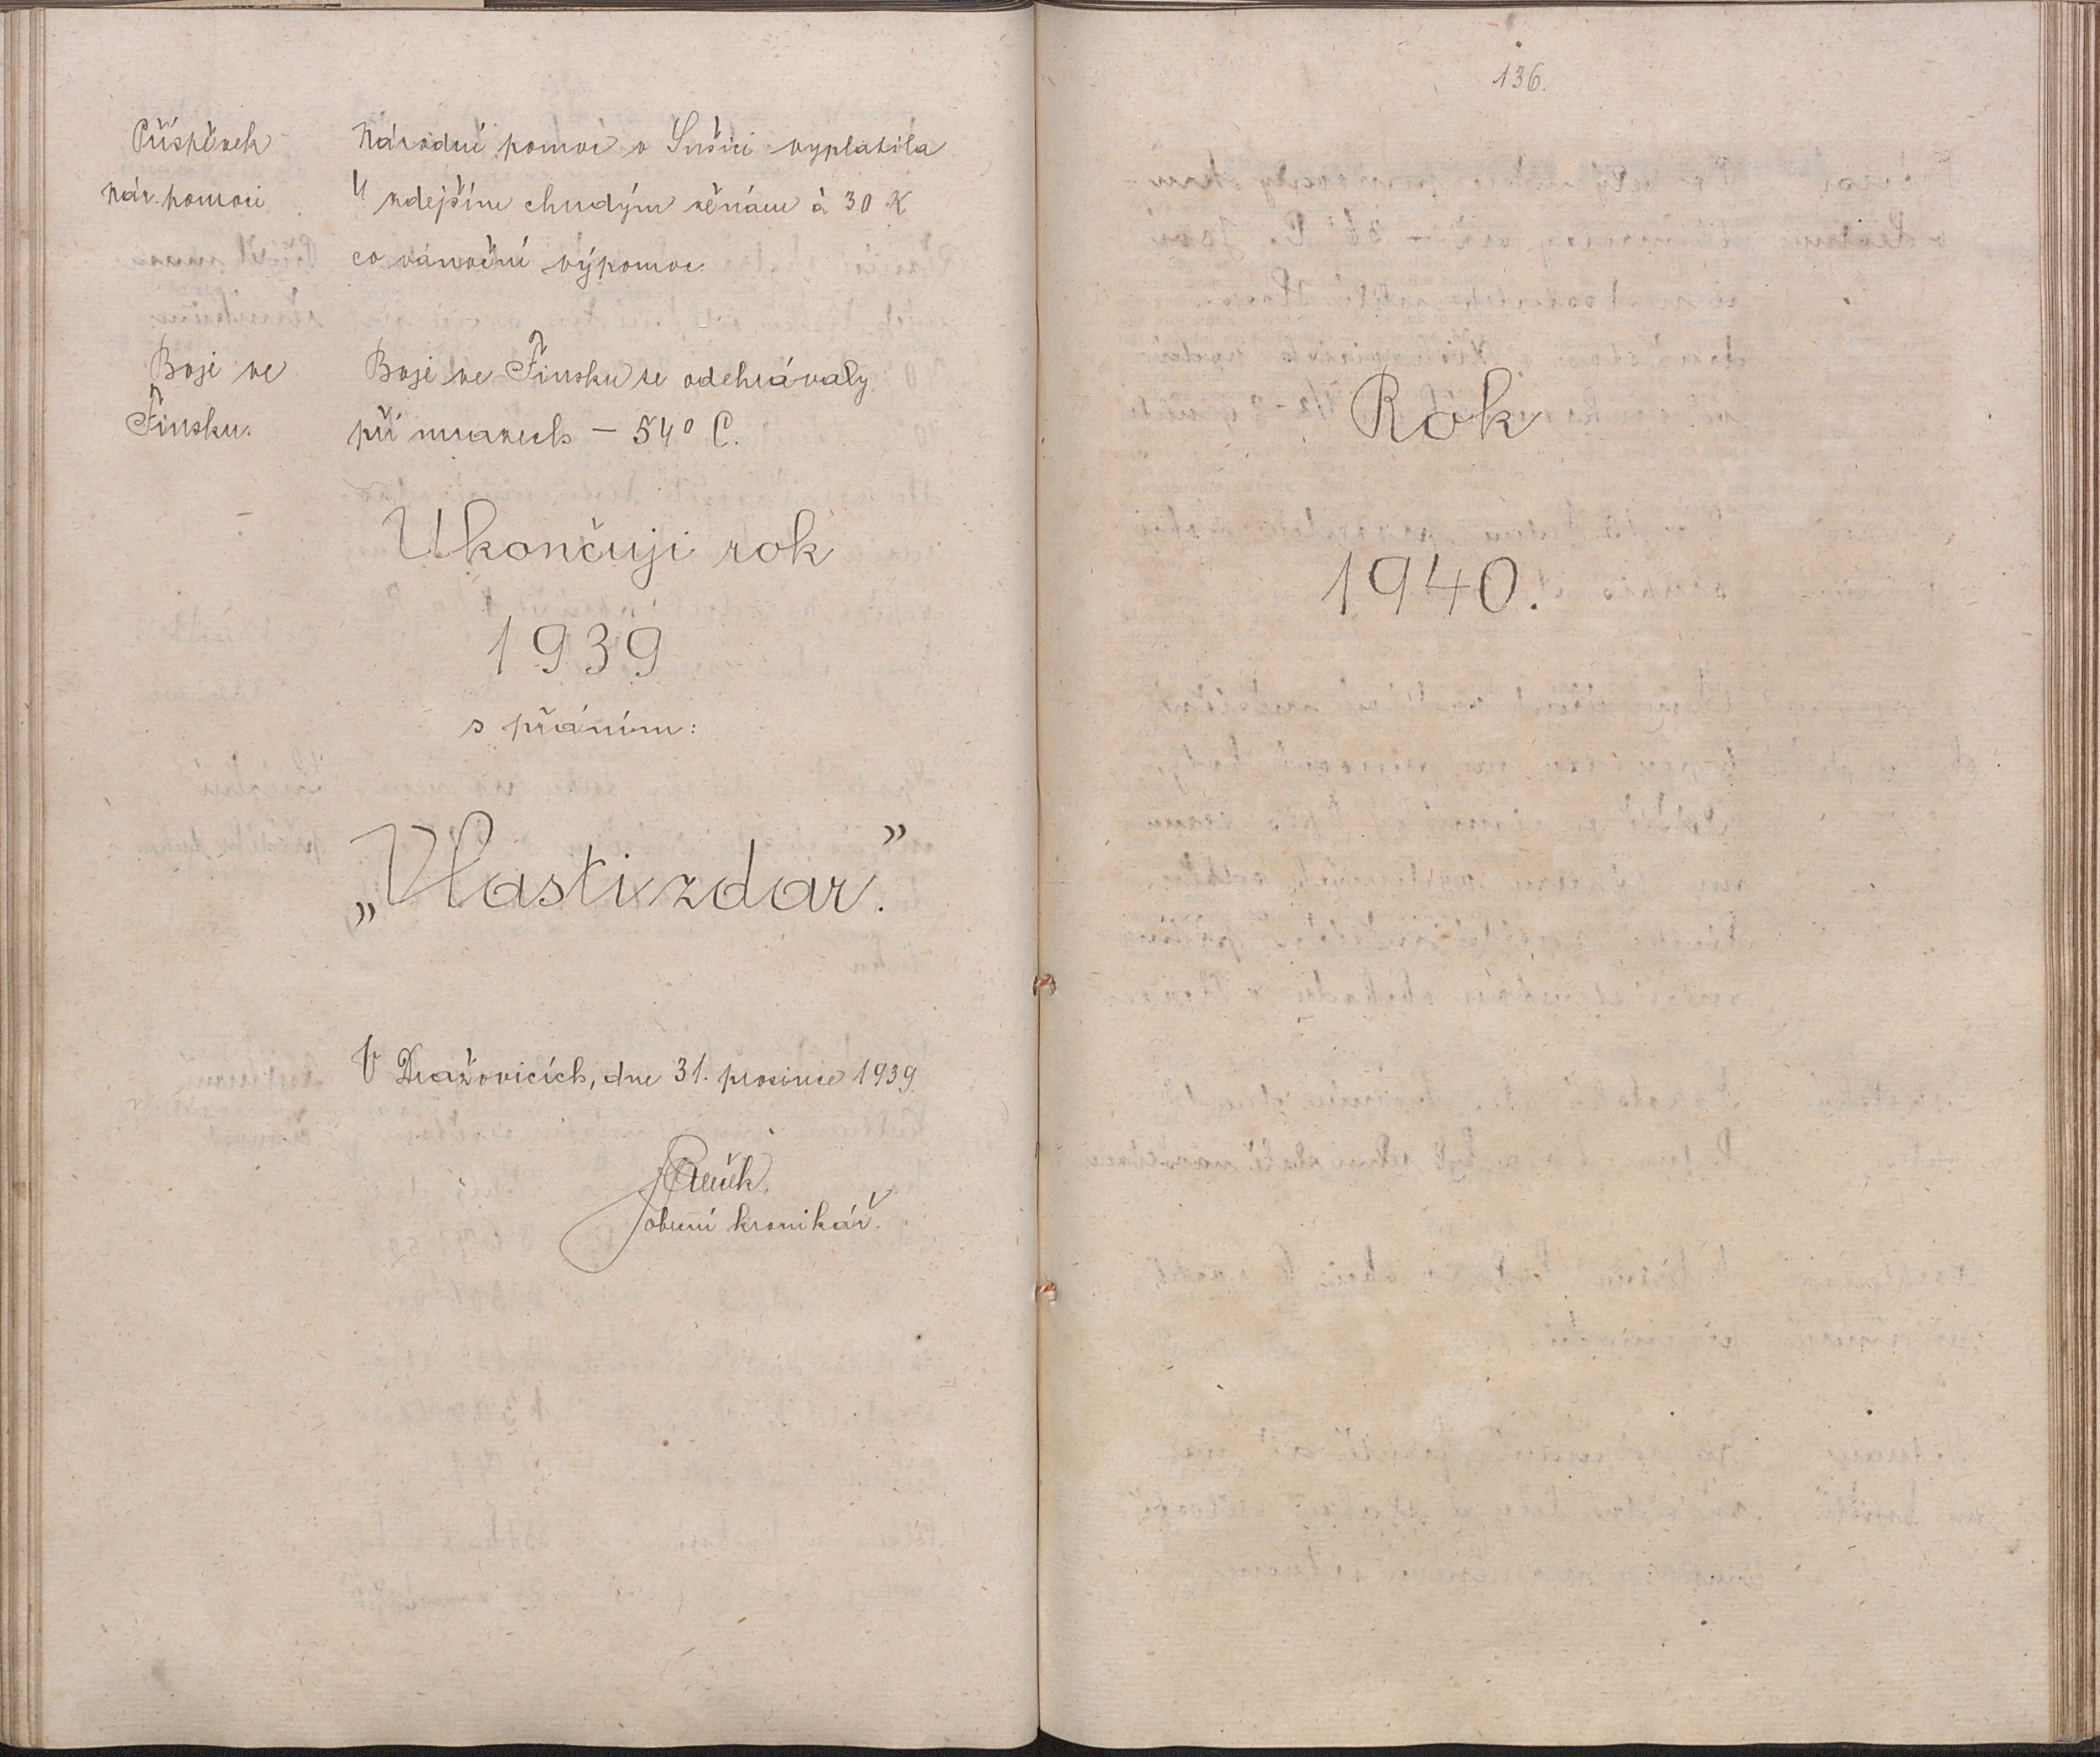 Příspěvek
nár. pomoci
Národní pomoc v Sušici vyplatila
4 zdejším chudým ženám à 30 K
co vánoční výpomoc.
Boje ve
Finsku.
Boje ve Finsku se odehrávaly
při mrazech – 54° C.
Ukončuji rok
1939
s přáním:
„Vlasti zdar.”
V Dražovicích, dne 31. prosince 1939
obecní kronikář.
136.
Rok
1940.